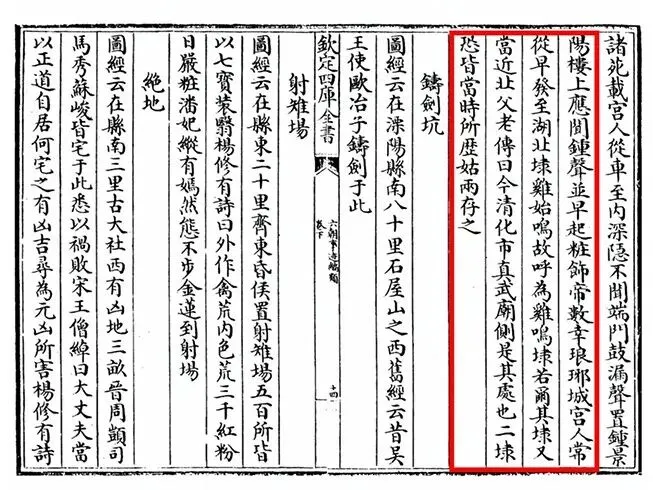 諸苑載宮人從車至内深隠不聞端門鼓漏聲置鍾景
陽樓上應聞鍾聲並早起粧飾帝數幸琅琊城宮人常
從早發至湖北埭雞始鳴故呼為雞鳴埭若爾其埭又
當近北父老傳曰今清化市真武廟側是其處也二埭
恐皆當時所歴姑兩存之
鑄劍坑
圖經云在溧陽縣南八十里石屋山之西舊經云昔吴
王使歐冶子鑄劍于此
欽定四庫全書
六朝事迹編類
卷下
十四
射雉塲
圖經云在縣東二十里齊東昏侯置射雉塲五百所皆
以七寶装翳楊修有詩曰外作禽荒内色荒三千紅粉
日嚴粧潘妃縱有嫣然態不步金蓮到射塲
絶地
圖經云在縣南三里古大社西有凶地三畝晉周顗司
馬秀蘇峻皆宅于此悉以禍敗宋王僧綽曰大丈夫當
以正道自居何宅之有凶吉尋為元凶所害楊修有詩